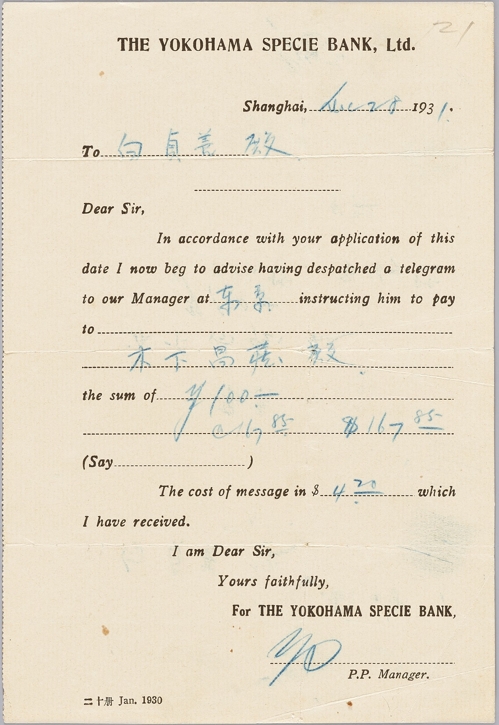 21
THE YOKOHAMA SPECIE BANK, Ltd.
Shanghai, Dec 28 1931.
To 白貞善 殿
Dear Sir,
In accordance with your application of this
date I now beg to advise having despatched a telegram
to our Manager at 东京 instructing him to pay
to
木下 殿
the sum of ¥100.—
@167 85 $167 85
(Say )
The cost of message in $ 4 20 which
I have received.
I am Dear Sir,
Yours faithfully,
For THE YOKOHAMA SPECIE BANK,
P.P. Manager.
二十册 Jan. 1930